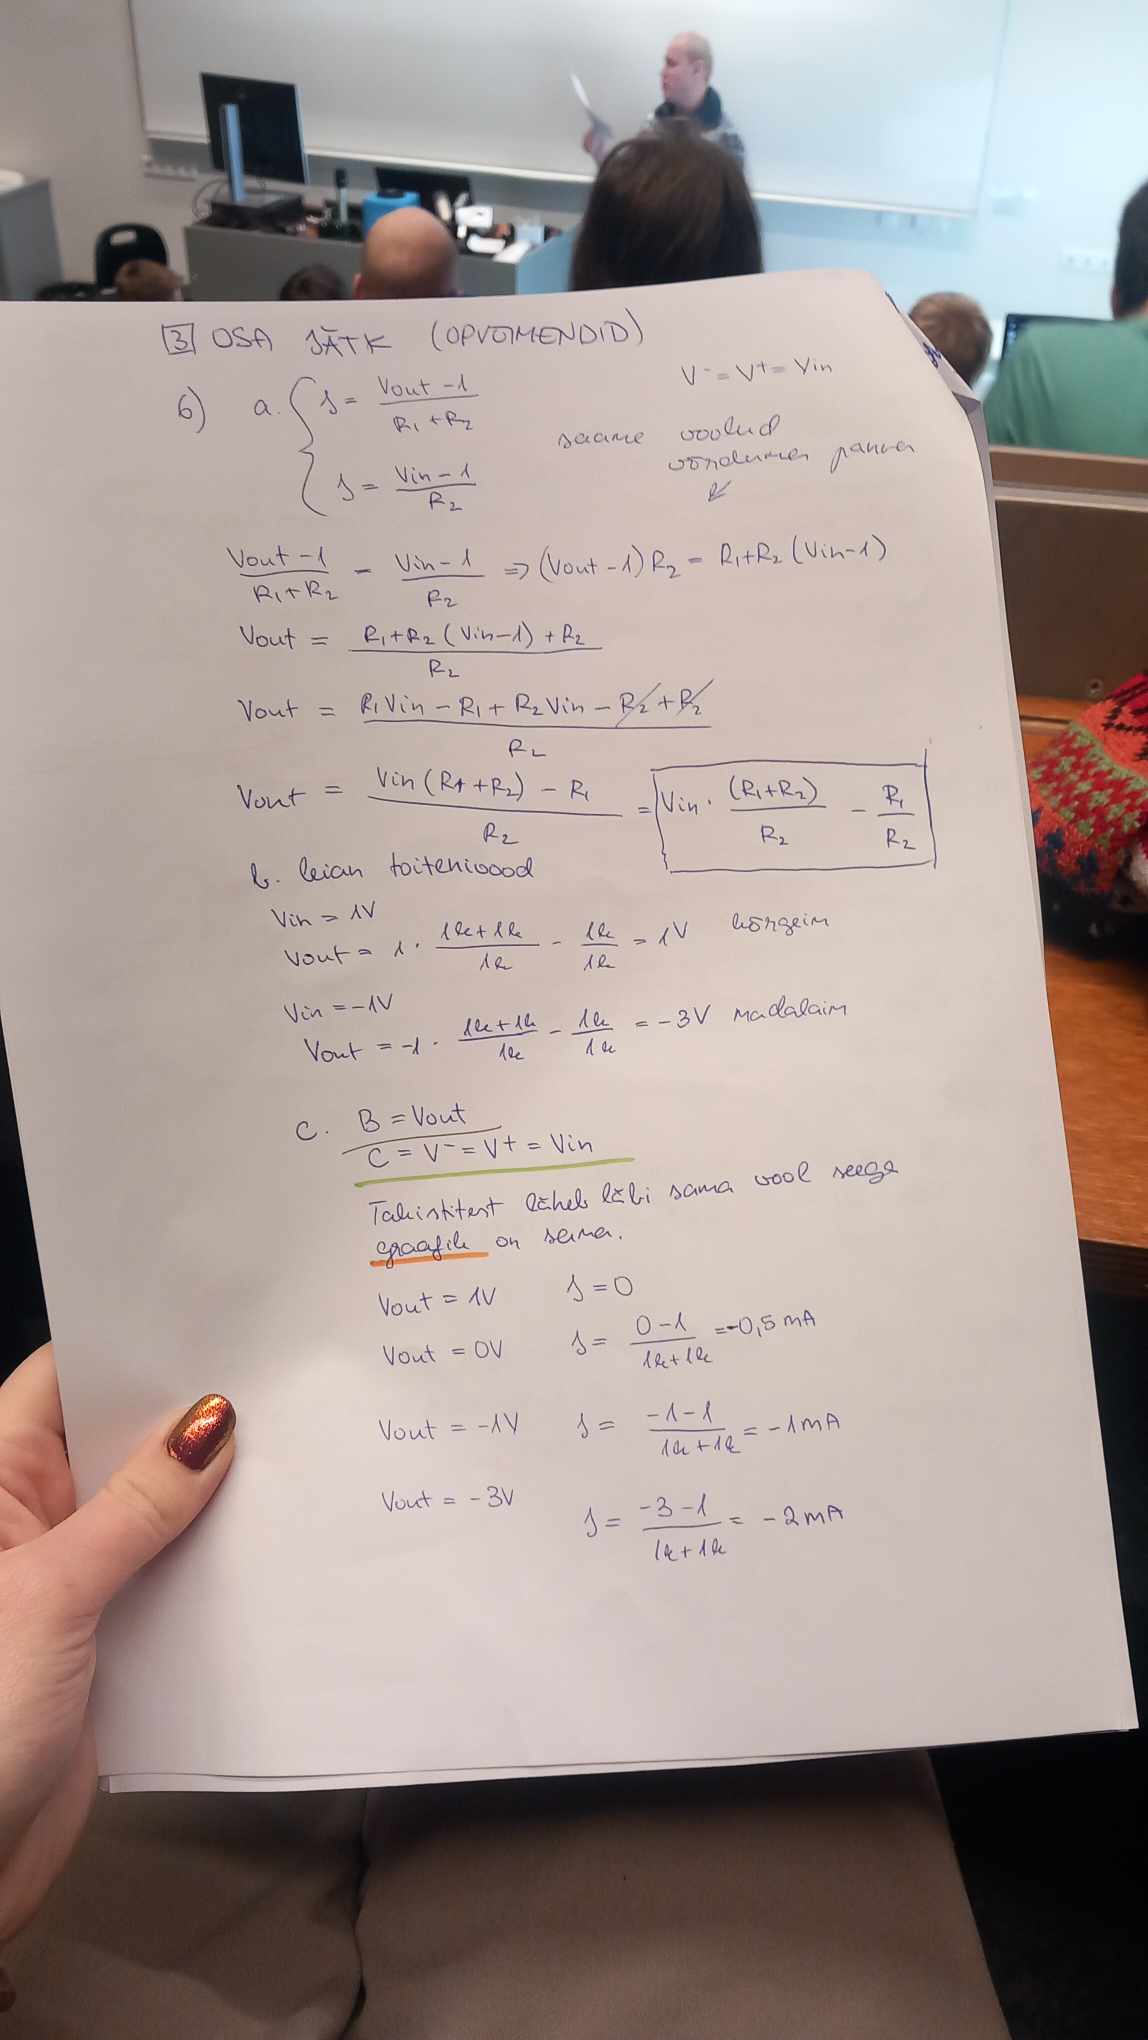 3 OSA JÄTK (OPVÕIMENDID)
6) a. { J = (Vout - 1) / (R1 + R2)
V⁻ = V⁺ = Vin
J = (Vin - 1) / R2
saame voolud
võrduma panna
(Vout - 1) / (R1 + R2) = (Vin - 1) / R2 => (Vout - 1) R2 = R1 + R2 (Vin - 1)
Vout = (R1 + R2 (Vin - 1) + R2) / R2
Vout = (R1 Vin - R1 + R2 Vin - R2 + R2) / R2
Vout = (Vin (R1 + R2) - R1) / R2 = Vin · (R1 + R2) / R2 - R1 / R2
b. leian toitenivood
Vin = 1V
Vout = 1 · (1k + 1k) / 1k - 1k / 1k = 1V kõrgeim
Vin = -1V
Vout = -1 · (1k + 1k) / 1k - 1k / 1k = -3V madalaim
C. B = Vout
C = V⁻ = V⁺ = Vin
Takistitest läheb läbi sama vool seega
graafik on sama.
Vout = 1V J = 0
Vout = 0V J = (0 - 1) / (1k + 1k) = -0,5 mA
Vout = -1V J = (-1 - 1) / (1k + 1k) = -1 mA
Vout = -3V J = (-3 - 1) / (1k + 1k) = -2 mA